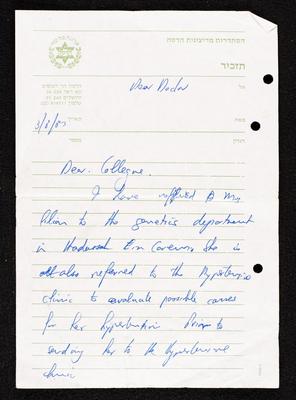 הסתדרות מדיצינית הדסה
תזכיר
אל
Dear Doctor
מאת
התאריך
הנדון
Dear. Collegue.
I have reffered
to the genetics department
in Hadassah Ein Carem, she is
also referred to the Hypertensive
clinic to evaluate possible causes
for her hypertention Prior to
sending her to the Hypertensive
clinic